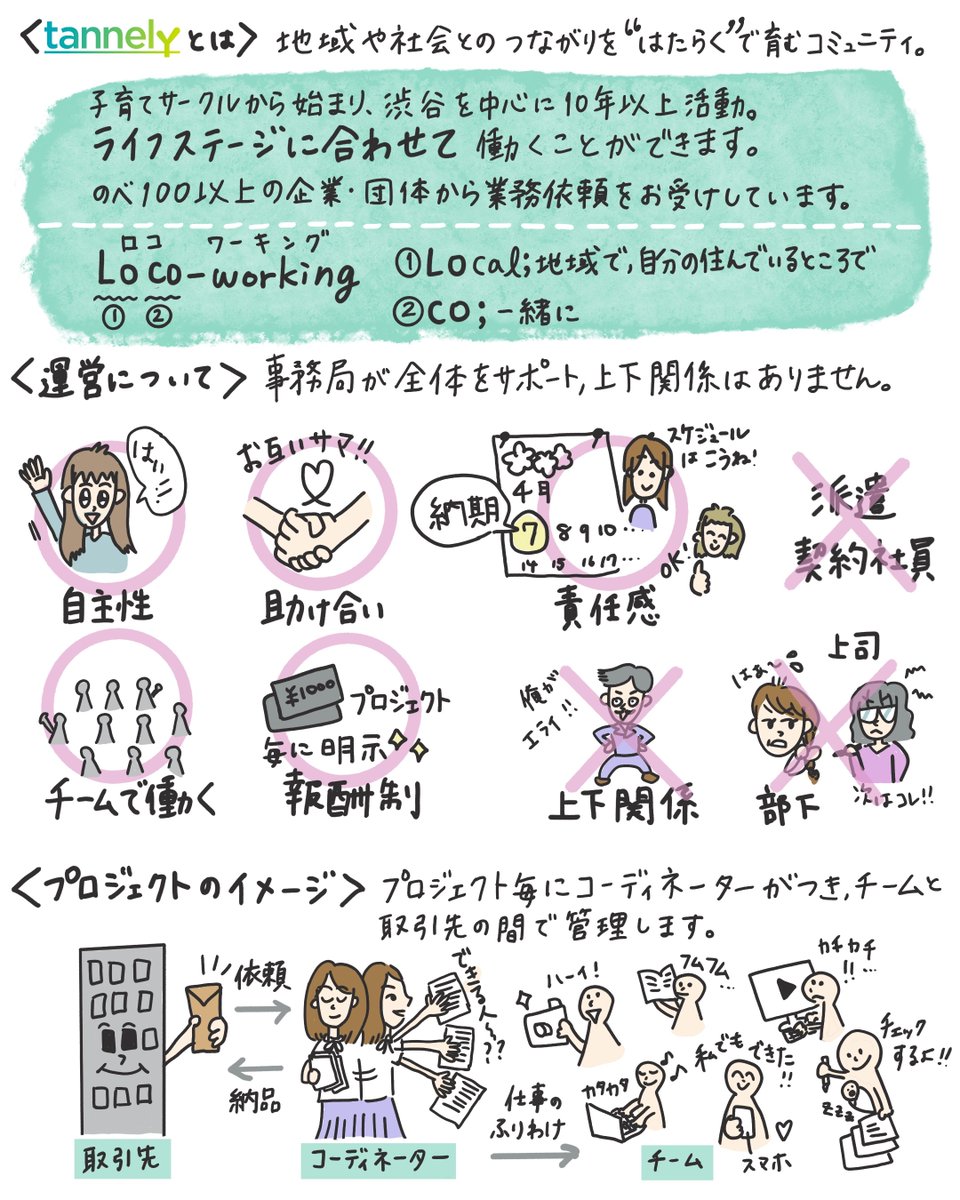 <tannelyとは> 地域や社会とのつながりを“はたらく”で育むコミュニティ。
子育てサークルから始まり、渋谷を中心に10年以上活動。
ライフステージに合わせて 働くことができます。
のべ100以上の企業・団体から業務依頼をお受けしています。
ロコ ワーキング
LOCO-working
① ②
①Local;地域で,自分の住んでいるところで
②CO;一緒に
<運営について> 事務局が全体をサポート,上下関係はありません。
はいっ
自主性
お互いサマ!!
助け合い
スケジュール
はこうね!
4月
納期
7 8 9 10 ...
14 15 16 17 ...
OK!
責任感
派遣
契約社員
チームで働く
¥1000
プロジェクト
毎に明示
報酬制
俺が
エライ!!
上下関係
上司
はぁ〜
次はコレ!!
部下
<プロジェクトのイメージ> プロジェクト毎にコーディネーターがつき,チームと
取引先の間で管理します。
依頼
納品
取引先
できる人〜??
コーディネーター
仕事の
ふりわけ
ハーイ!
フムフム
カチカチ
!!...
カタカタ
♪
私でも
できた
!!
スマホ
♡
チェック
するよ!!
zzz
チーム